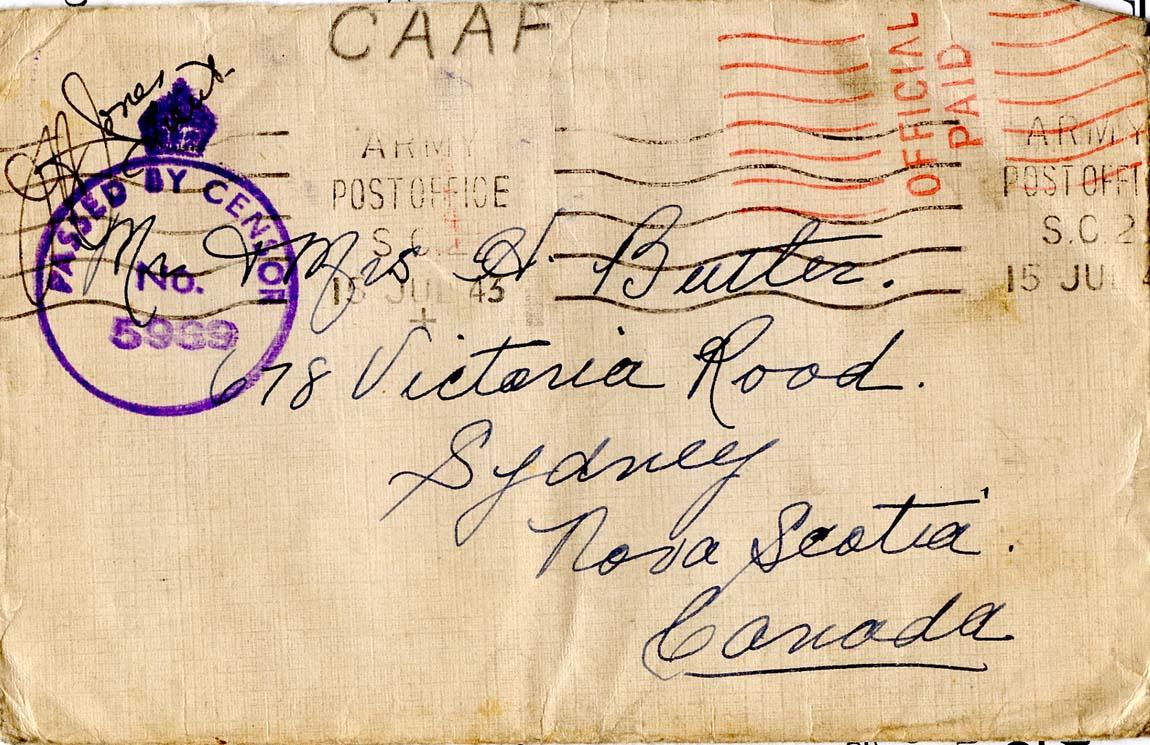 CAAF
OFFICIAL
PAID
Jones
ARMY
POST OFFICE
S.C.2
15 JUL 43
ARMY
POST OFFI
S.C.2
15 JUL 4
PASSED BY CENSOR
No.
5969
Mr. & Mrs H. Butler.
678 Victoria Road.
Sydney
Nova Scotia.
Canada